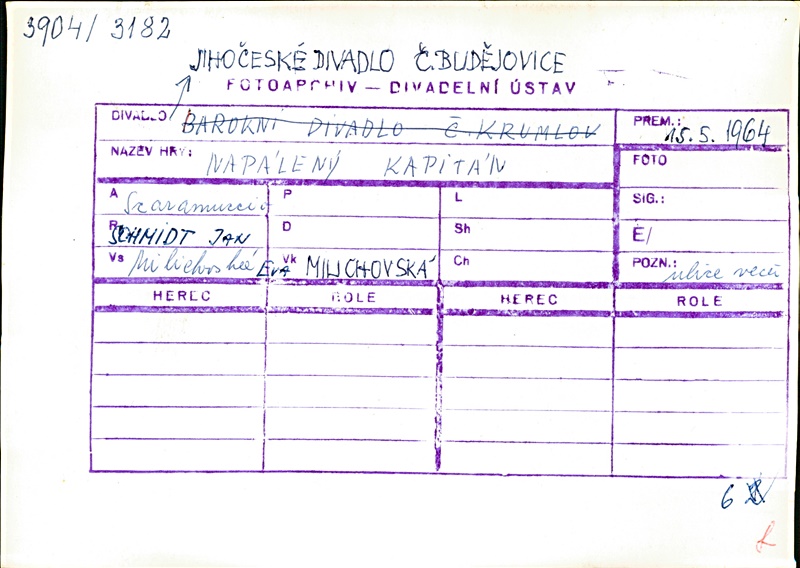 3904/3182
JIHOČESKÉ DIVADLO Č. BUDĚJOVICE
FOTOARCHIV — DIVADELNÍ ÚSTAV
DIVADLO BAROKNÍ DIVADLO Č. KRUMLOV
PREM.: 15. 5. 1964
NÁZEV HRY: NAPÁLENÝ KAPITÁN
FOTO
A
P
L
SIG.:
R SCHMIDT JAN
D
Sh
Č/
Vs Milichovská EVA
Vk MILICHOVSKÁ
Ch
POZN.: ulice
HEREC ROLE HEREC ROLE
6